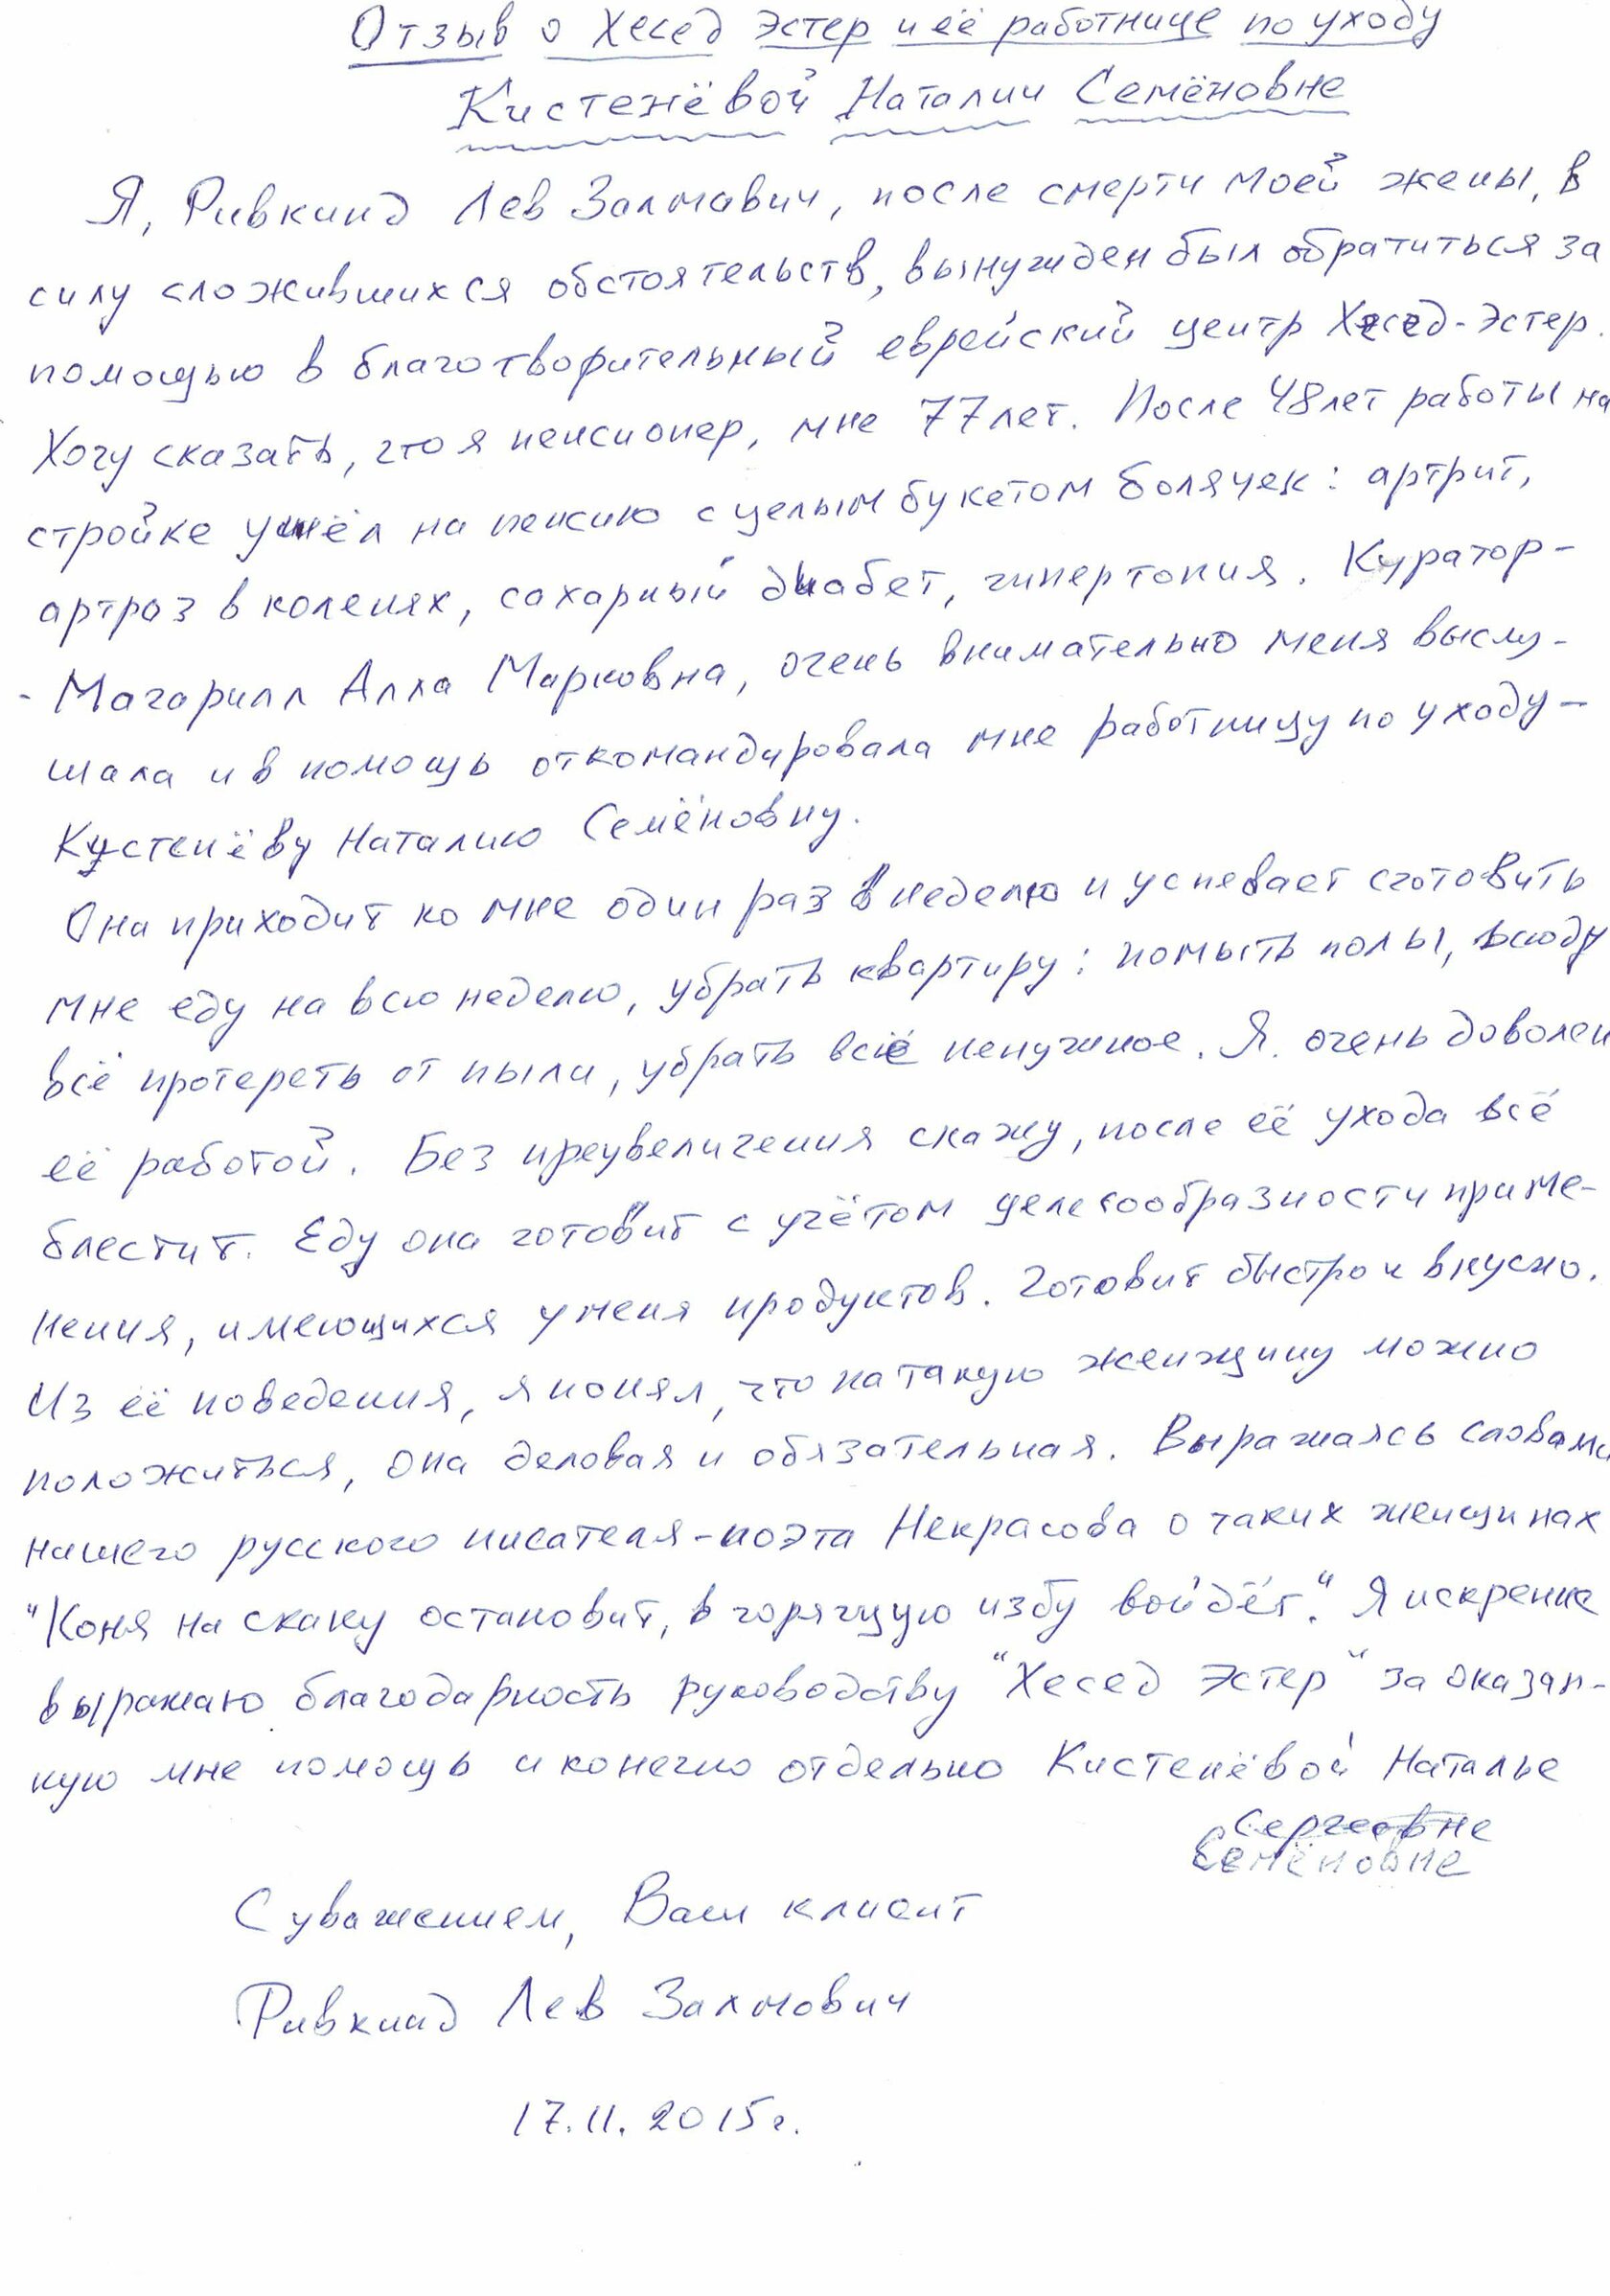 Отзыв о Хесед Эстер и её работнице по уходу
Кистенёвой Наталии Семёновне
Я, Ривкинд Лев Залмавич, после смерти моей жены, в
силу сложившихся обстоятельств, вынужден был обратиться за
помощью в благотворительный еврейский центр Хесед-Эстер.
Хочу сказать, что я пенсионер, мне 77 лет. После 48 лет работы на
стройке ушёл на пенсию с целым букетом болячек: артрит,
артроз в коленях, сахарный диабет, гипертония. Куратор-
- Магарилл Алла Марковна, очень внимательно меня выслу-
шала и в помощь откомандировала мне работницу по уходу –
Кустенёву Наталию Семёновну.
Она приходит ко мне один раз в неделю и успевает сготовить
мне еду на всю неделю, убрать квартиру: помыть полы, всюду
всё протереть от пыли, убрать всё ненужное. Я очень доволен
её работой. Без преувеличения скажу, после её ухода всё
блестит. Еду она готовит с учётом целесообразности приме-
нения, имеющихся у меня продуктов. Готовит быстро и вкусно.
Из её поведения, я понял, что на такую женщину можно
положиться, она деловая и обязательная. Выражаясь словами
нашего русского писателя-поэта Некрасова о таких женщинах
"Коня на скаку остановит, в горячую избу войдёт." Я искренне
выражаю благодарность руководству "Хесед Эстер" за оказан-
ную мне помощь и конечно отдельно Кистенёвой Наталье
Сергеевне
Семёновне
С уважением, Ваш клиент
Ривкинд Лев Залмович
17.11.2015г.